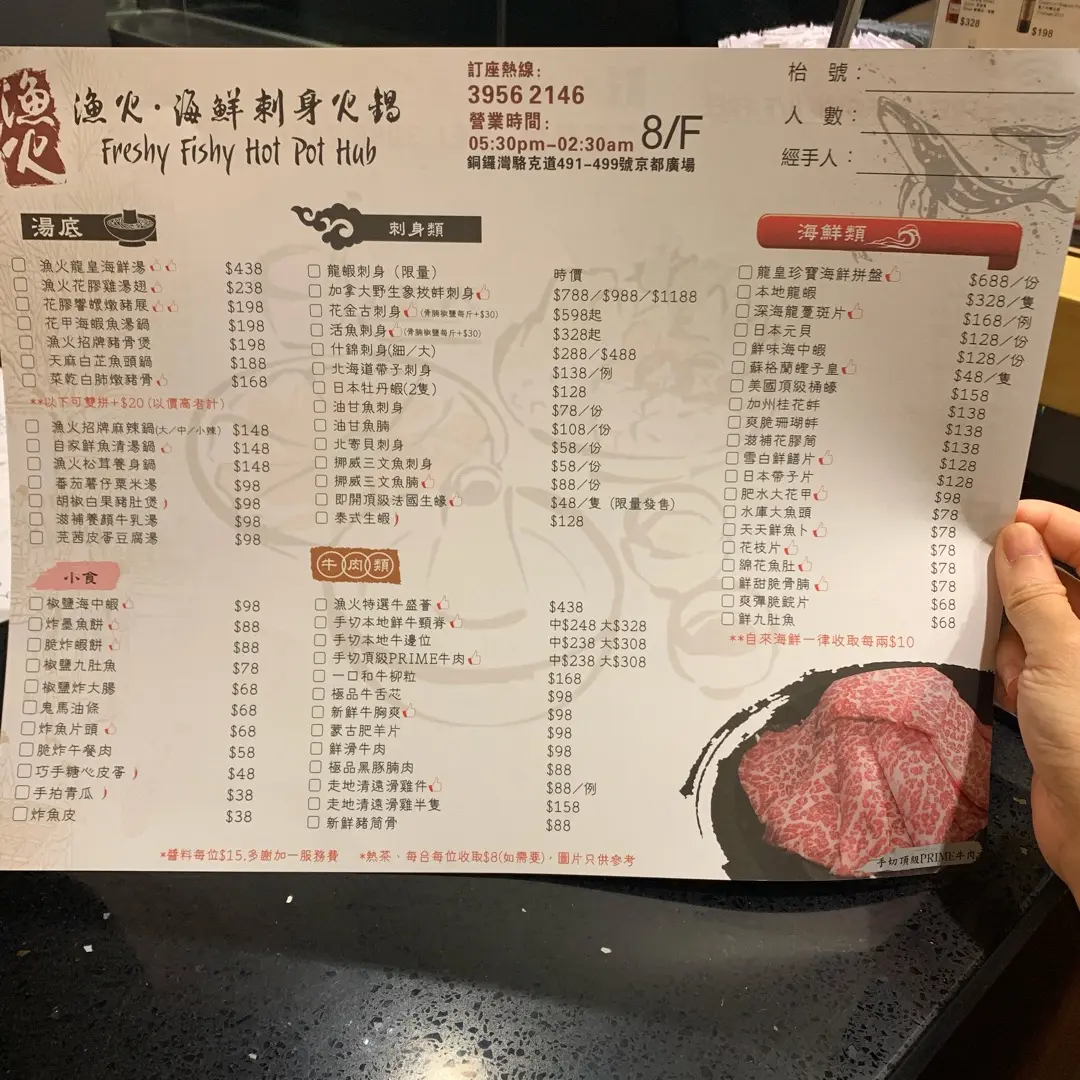 漁火
漁火·海鮮刺身火鍋
Freshy Fishy Hot Pot Hub
訂座熱線：
3956 2146
營業時間：
05:30pm–02:30am
8/F
銅鑼灣駱克道491-499號京都廣場
枱 號：
人 數：
經手人：
$328
$198
湯底
漁火龍皇海鮮湯 $438
漁火花膠雞湯翅 $238
花膠響螺燉豬展 $198
花甲海蝦魚湯鍋 $198
漁火招牌豬骨煲 $198
天麻白芷魚頭鍋 $188
菜乾白肺燉豬骨 $168
**以下可雙拼+$20 (以價高者計)
漁火招牌麻辣鍋(大/中/小辣) $148
自家鮮魚清湯鍋 $148
漁火松茸養身鍋 $148
番茄薯仔粟米湯 $98
胡椒白果豬肚煲 $98
滋補養顏牛乳湯 $98
芫茜皮蛋豆腐湯 $98
小食
椒鹽海中蝦 $98
炸墨魚餅 $88
脆炸蝦餅 $88
椒鹽九肚魚 $78
椒鹽炸大腸 $68
鬼馬油條 $68
炸魚片頭 $68
脆炸午餐肉 $58
巧手糖心皮蛋 $48
手拍青瓜 $38
炸魚皮 $38
刺身類
龍蝦刺身（限量） 時價
加拿大野生象拔蚌刺身 $788/$988/$1188
花金古刺身(骨腩椒鹽每斤+$30) $598起
活魚刺身(骨腩椒鹽每斤+$30) $328起
什錦刺身(細/大) $288/$488
北海道帶子刺身 $138/例
日本牡丹蝦(2隻) $128
油甘魚刺身 $78/份
油甘魚腩 $108/份
北寄貝刺身 $58/份
挪威三文魚刺身 $58/份
挪威三文魚腩 $88/份
即開頂級法國生蠔 $48/隻（限量發售）
泰式生蝦 $128
牛肉類
漁火特選牛盛薈 $438
手切本地鮮牛頸脊 中$248 大$328
手切本地牛邊位 中$238 大$308
手切頂級PRIME牛肉 中$238 大$308
一口和牛柳粒 $168
極品牛舌芯 $98
新鮮牛胸爽 $98
蒙古肥羊片 $98
鮮滑牛肉 $98
極品黑豚腩肉 $88
走地清遠滑雞件 $88/例
走地清遠滑雞半隻 $158
新鮮豬筒骨 $88
海鮮類
龍皇珍寶海鮮拼盤 $688/份
本地龍蝦 $328/隻
深海龍躉斑片 $168/例
日本元貝 $128/份
鮮味海中蝦 $128/份
蘇格蘭蟶子皇 $48/隻
美國頂級桶蠔 $158
加州桂花蚌 $138
爽脆珊瑚蚌 $138
滋補花膠筒 $138
雪白鮮鱔片 $128
日本帶子片 $128
肥水大花甲 $98
水庫大魚頭 $78
天天鮮魚卜 $78
花枝片 $78
綿花魚肚 $78
鮮甜脆骨腩 $78
爽彈脆鯇片 $68
鮮九肚魚 $68
**自來海鮮一律收取每両$10
手切頂級PRIME牛肉
*醬料每位$15,多謝加一服務費 *熱茶、每台每位收取$8(如需要)，圖片只供參考